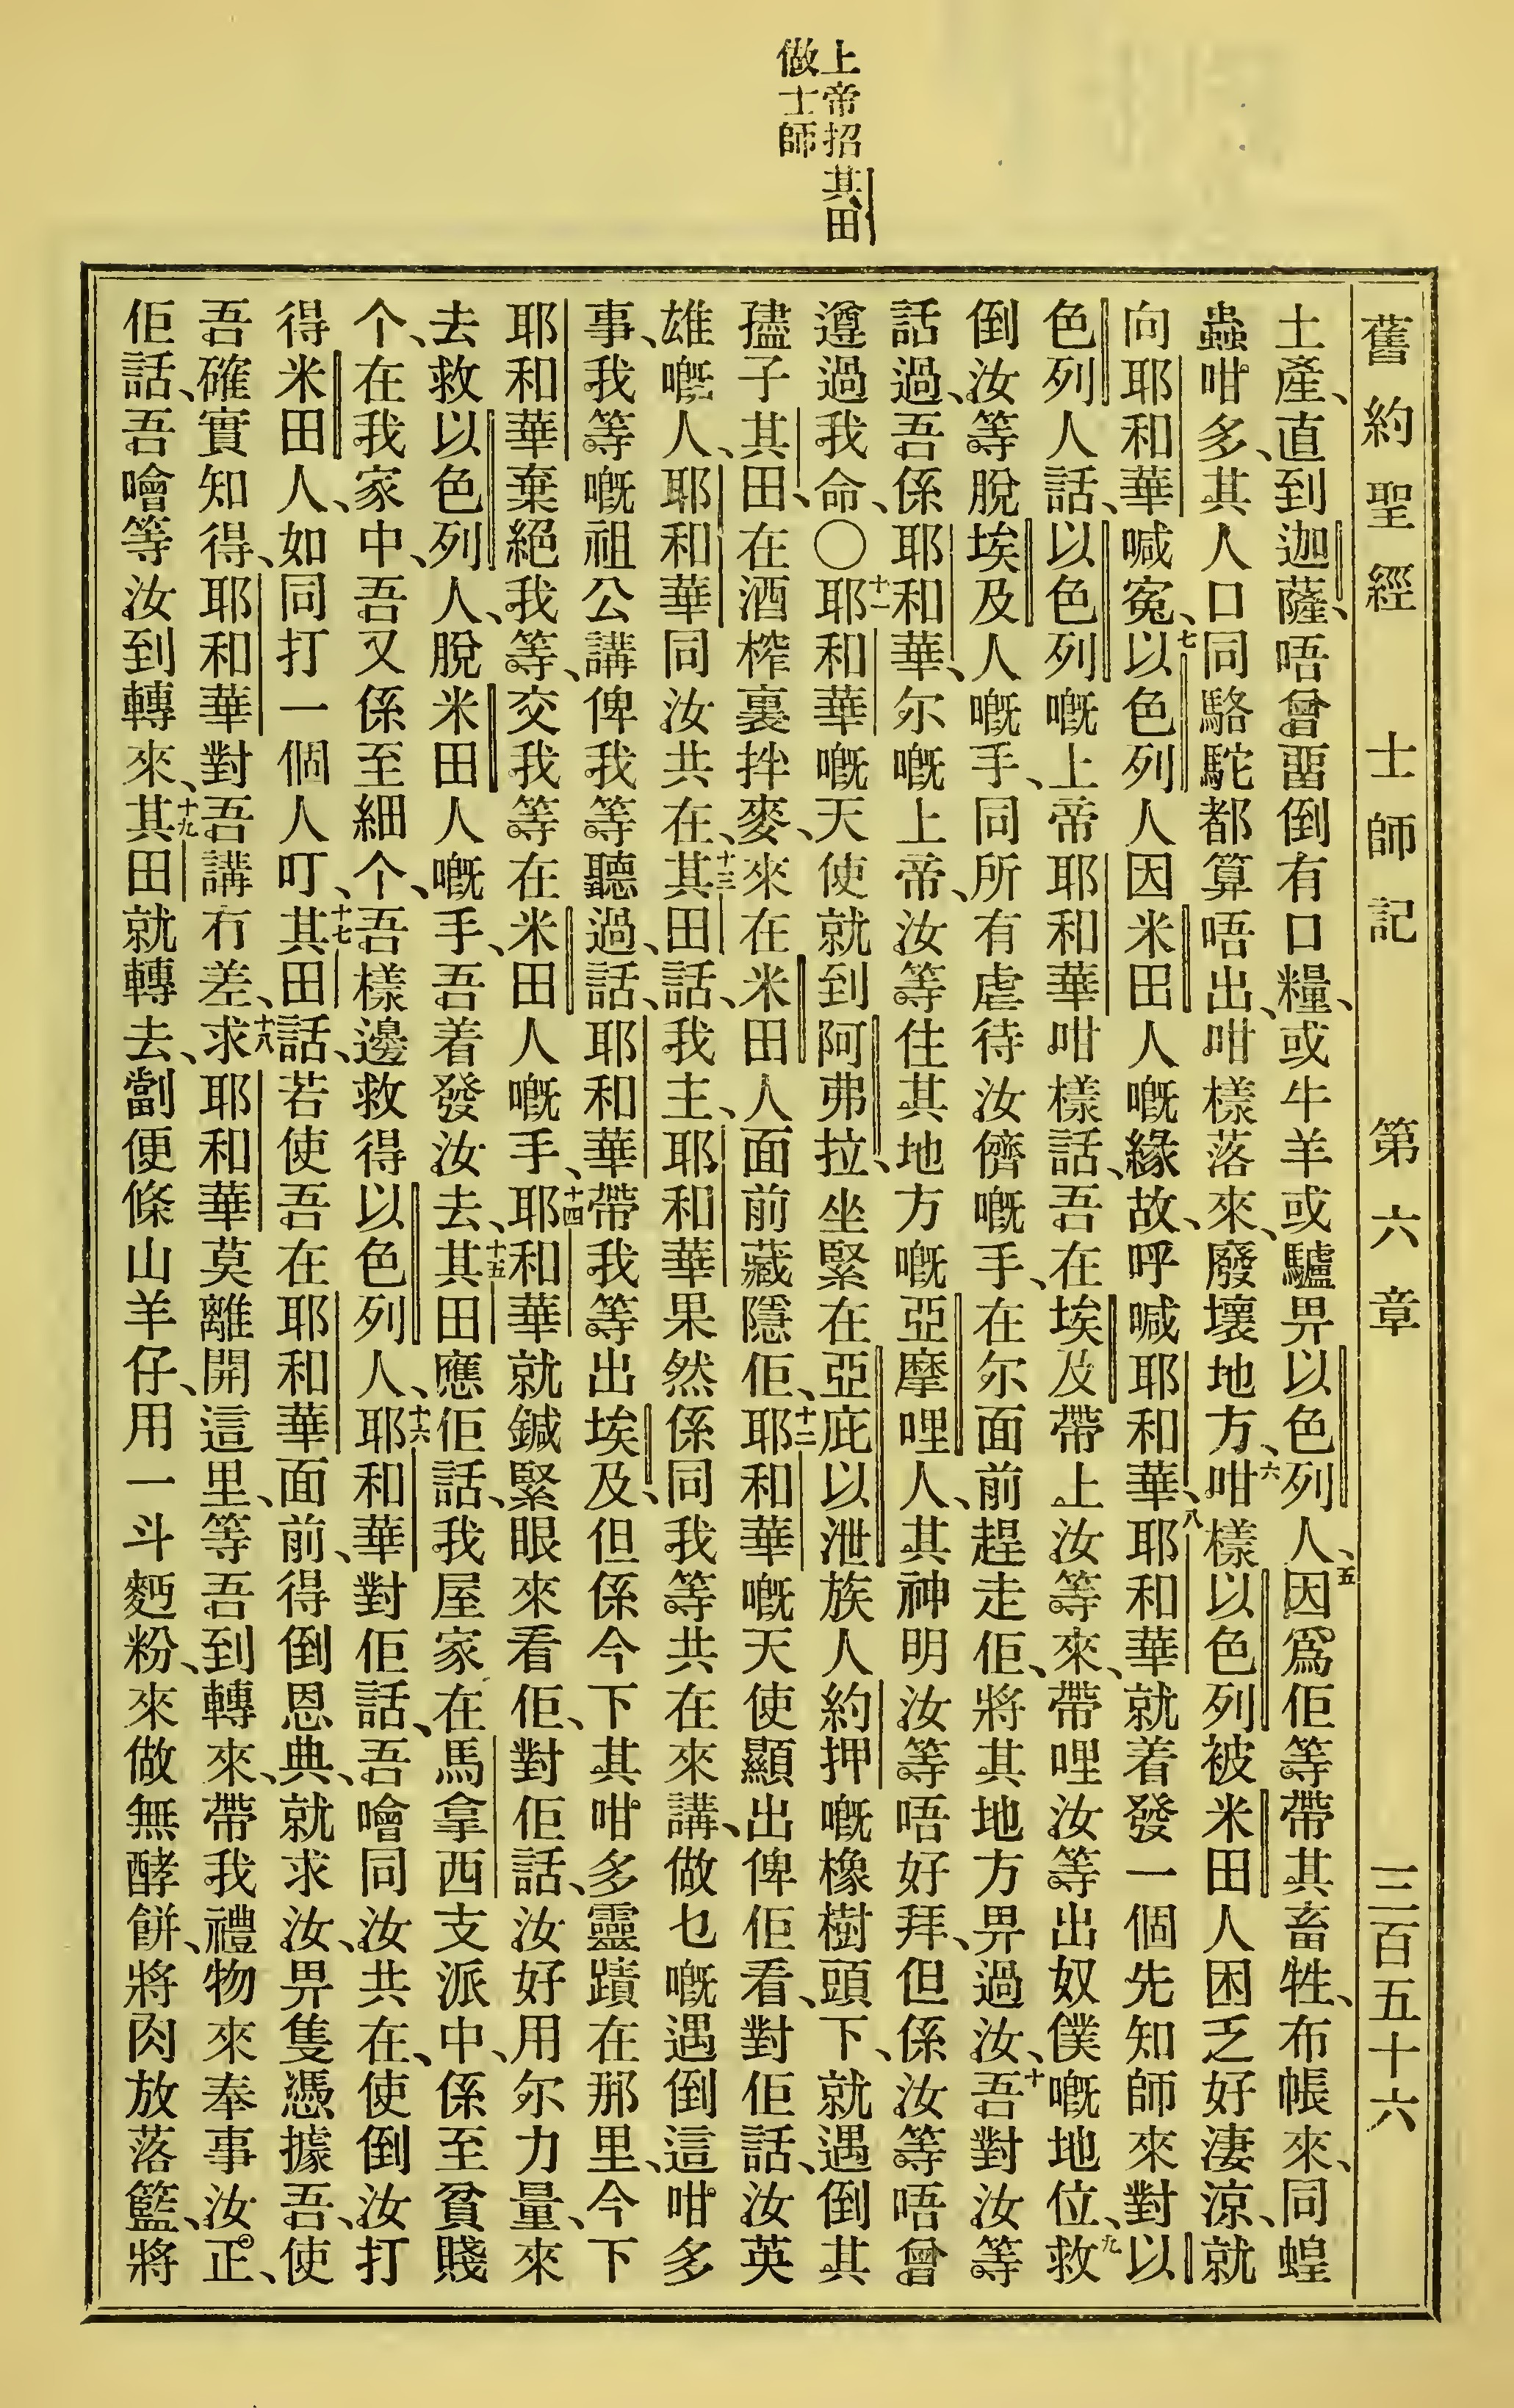 上帝招其田
做士師
舊約聖經 士師記 第六章 三百五十六
土產、直到迦薩、唔曾畱倒有口糧、或牛羊或驢畀以色列人、五因爲佢等帶其畜牲、布帳來、同蝗
蟲咁多、其人口同駱駝都算唔出、咁樣落來、廢壞地方、六咁樣以色列被米田人困乏好淒涼、就
向耶和華喊寃、七以色列人因米田人嘅緣故、呼喊耶和華、八耶和華就着發一個先知師來對以
色列人話、以色列嘅上帝耶和華咁樣話、吾在埃及帶上汝等來、帶哩汝等出奴僕嘅地位、九救
倒汝等脫埃及人嘅手、同所有虐待汝儕嘅手、在尔面前趕走佢、將其地方畀過汝、十吾對汝等
話過、吾係耶和華、尔嘅上帝、汝等住其地方嘅亞摩哩人、其神明汝等唔好拜、但係汝等唔曾
遵過我命、〇十一耶和華嘅天使就到阿弗拉、坐緊在亞庇以泄族人約押嘅橡樹頭下、就遇倒其
孻子其田、在酒榨裏拌麥、來在米田人面前藏隱佢、十二耶和華嘅天使顯出俾佢看、對佢話、汝英
雄嘅人、耶和華同汝共在、十三其田話、我主、耶和華果然係同我等共在來講、做乜嘅遇倒這咁多
事、我等嘅祖公講俾我等聽過、話、耶和華帶我等出埃及、但係今下其咁多靈蹟在那里、今下
耶和華棄絕我等、交我等在米田人嘅手、十四耶和華就鍼緊眼來看佢、對佢話、汝好用尔力量、來
去救以色列人、脫米田人嘅手、吾着發汝去、十五其田應佢話、我屋家在馬拿西支派中、係至貧賤
个、在我家中、吾又係至細个、吾樣邊救得以色列人、十六耶和華對佢話、吾噲同汝共在、使倒汝打
得米田人、如同打一個人叮、十七其田話、若使吾在耶和華面前、得倒恩典、就求汝、畀隻憑據吾、使
吾確實知得、耶和華對吾講冇差、十八求耶和華莫離開這里、等吾到轉來、帶我禮物來奉事汝。正、
佢話、吾噲等汝到轉來、十九其田就轉去、劏便條山羊仔、用一斗麪粉、來做無酵餅、將肉放落籃、將